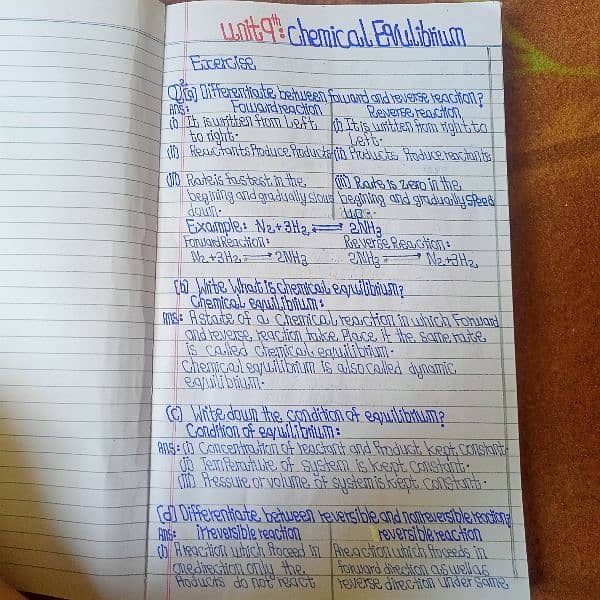 Unit 9th: Chemical Equlibrium
Exercise
Q (a) Differentiate between foward and reverse reaction?
Ans: Foward reaction Reverse reaction
(i) It is written from Left to right. (i) It is written from right to Left.
(ii) Reactants Produce Products (ii) Products Produce reactants
(iii) Rate is fastest in the begining and gradually slows down. (iii) Rate is zero in the begining and gradually speed up.
Example: N₂+3H₂ ⇌ 2NH₃
Forward Reaction: Reverse Reaction:
N₂+3H₂ ⇌ 2NH₃ 2NH₃ ⇌ N₂+3H₂
(b) Write What is chemical equilibrium?
Chemical equilibrium:
Ans: A state of a Chemical reaction in which Forward
and reverse reaction take Place it the same rate
is called chemical equilibrium.
Chemical equilibrium is also called dynamic
equilibrium.
(c) Write down the condition of equilibrium?
Condition of equilibrium:
Ans: (i) Concentration of reactant and Product kept constant
(ii) Temperature of system is kept constant.
(iii) Pressure or volume of system is kept constant.
(d) Differentiate between reversible and nonreversible reaction?
Ans: irreversible reaction reversible reaction
(i) A reaction which Proceed in A reaction which Proceeds in
one direction only the forward direction as well as
Products do not react reverse direction under same